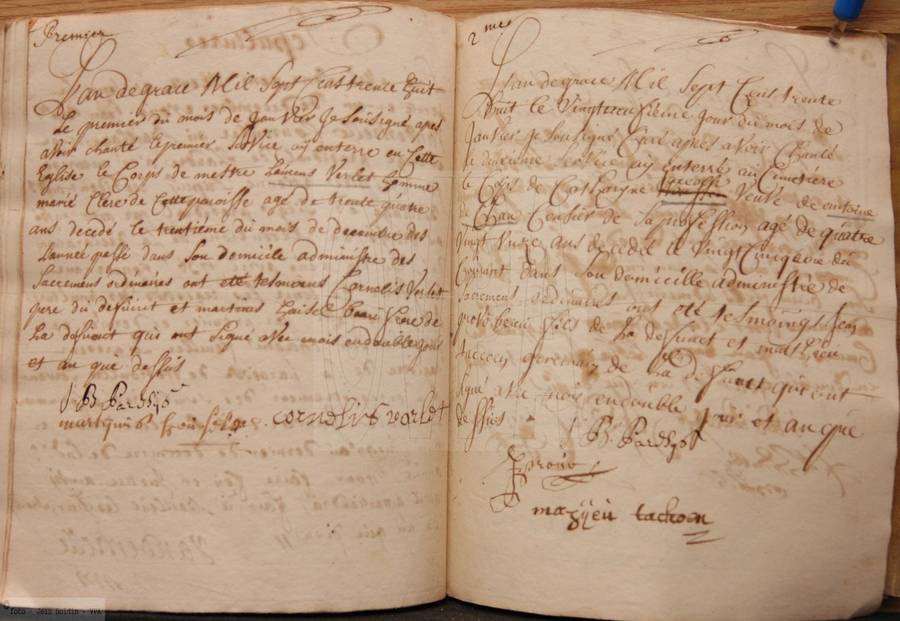 Premier
L'an de grace Mil Sept Cens trente huit
Le premier du mois de Janvier Je sousigné apres
avoir chanté le premier service ay enterré en Cette
Eglise le Corps de messre Varlet homme
marié Clerc de Cette paroisse agé de trente quatre
ans decedé le trentiéme du mois de decembre des
L'année passé dans son domicile administré des
Sacremens ordinaires ont eté tesmoins Cornelis Varlet
pere du defunct et martinus beau frere de
La defunct qui ont signé avec mois en double jour
et an que dessus
cornelis varlet
2me
L'an de grace Mil Sept Cens trente
huit le Vingt Jour du mois de
Janvier Je sousigné Curé apres avoir Chanté
le service ay enterré au Cimetiere
le Corps de Catharyne Veuve de antoine
de Censier de sa profession agé de quatre
Vingt ans decedée le Vingt Cinqieme du
Courant dans son domicille administré de
Sacremens ordinaires ont eté tesmoings Jean
provo beau fils de La defunct et mathieu
taccoen germain de La defunct qui ont
signé avec mois en double jour et an que
dessus
provo
tackoen
foto - - VVA